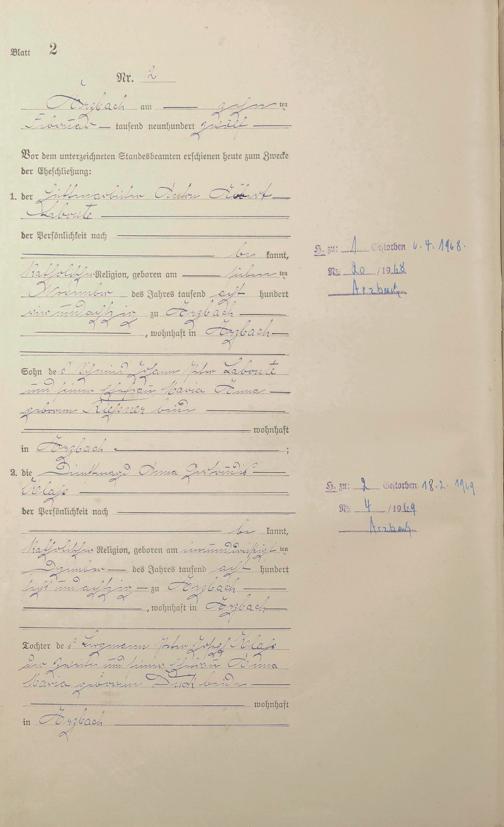 Blatt 2
Nr. 2
Arzbach am zehn ten
Februar tausend neunhundert zwölf
Vor dem unterzeichneten Standesbeamten erschienen heute zum Zwecke
der Eheschließung:
1. der Hüttenarbeiter Anton Robert
Labonte
der Persönlichkeit nach
be kannt,
katholischer Religion, geboren am ten
November des Jahres tausend acht hundert
vier und achtzig zu Arzbach
, wohnhaft in Arzbach
Sohn des Johann Peter Labonte
und seiner Ehefrau Maria Anna
geborene beide
wohnhaft
in Arzbach ;
2. die Dienstmagd Anna Gertrudis
der Persönlichkeit nach
be kannt,
katholischer Religion, geboren am ten
Dezember des Jahres tausend acht hundert
sechs und achtzig zu Arzbach
, wohnhaft in Arzbach
Tochter des Bergmann Peter Josef
und seiner Ehefrau Anna
Maria geborene beide
wohnhaft
in Arzbach
H. zu: 1 Gestorben 6.4.1968.
Nr. 20 / 1968
Arzbach
H. zu: 2 Gestorben 18.2.1969
Nr. 4 / 1969
Arzbach